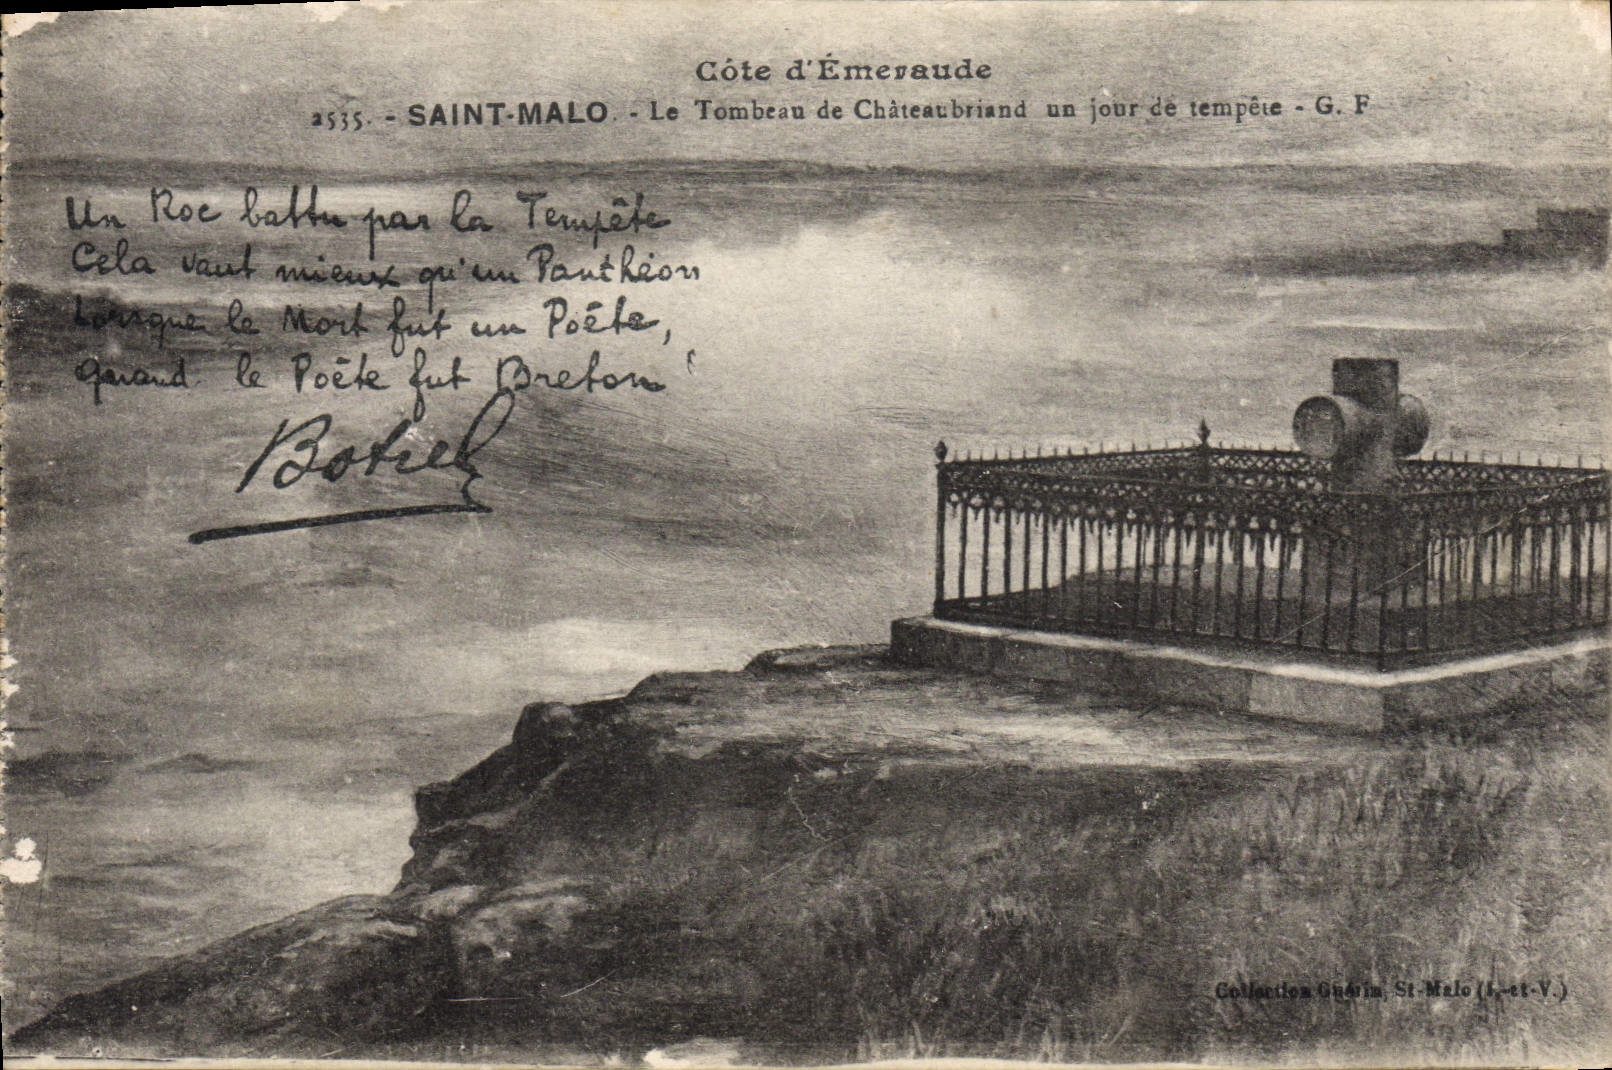 Côte d'Émeraude
2535. - SAINT-MALO. - Le Tombeau de Châteaubriand un jour de tempête - G. F
Un Roc battu par la Tempête
Cela vaut mieux qu'un Panthéon
Lorsque le Mort fut un Poète,
Quand le Poète fut Breton !
Botrel
Collection Guérin, St-Malo (I.-et-V.)